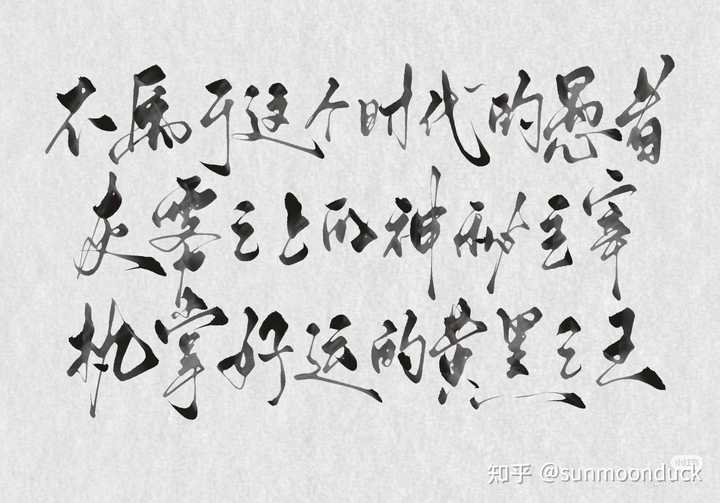 不属于这个时代的愚者
灰雾之上的神秘主宰
执掌好运的黄黑之王
小红书
知乎 @sunmoonduck